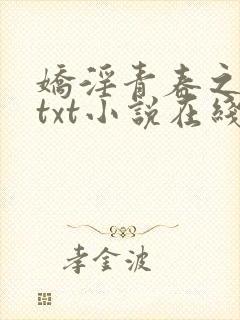 嬌淫青春之
txt小説在綫
李金波